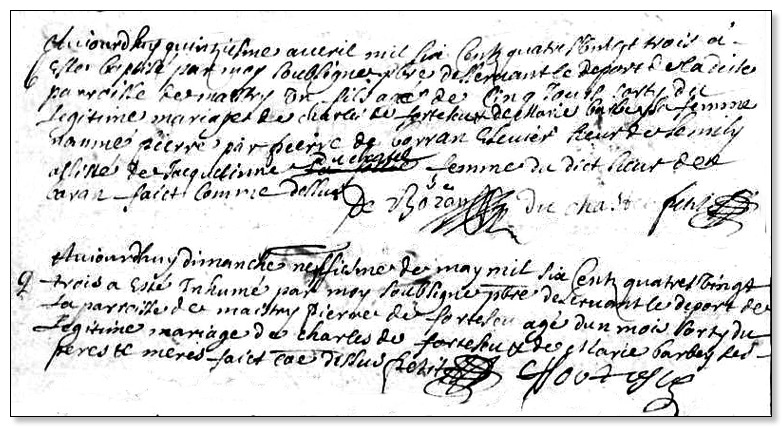 Aujourdhuy quinziesme apvril mil six centz quatre vingt trois a
Esté baptisé par moy soubsigné pbre deservant le deport de la dite
parroisse de maistry un fils agé de cinq jours sorty du
legitime mariage de charles de fortescu et de Marie barbey sa femme
nommé pierre par pierre de barran Escuier sieur de
assisté de Jacqueline du chastel femme du dict sieur de
baran faict comme dessus
de du chastel
9 Aujourdhuy dimanche neufiesme de may mil six centz quatre vingt
trois a Esté Inhumé par moy soubsigné pbre deservant le deport de
la parroisse de maistry pierre de fortescu agé dun mois sorty du
legitime mariage de charles de fortescu & de Marie barbey ses
peres & meres faict coe dessus